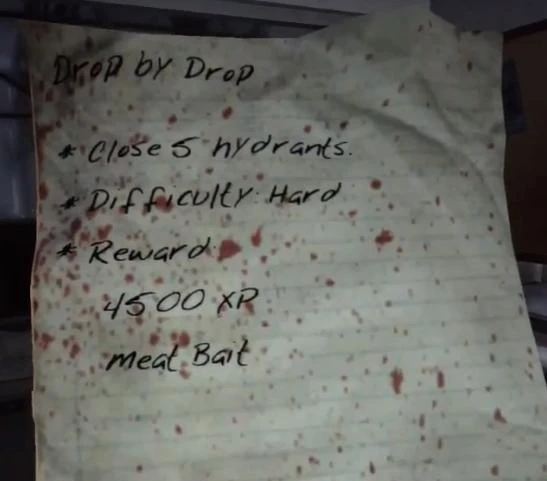 Drop by Drop
* Close 5 hydrants.
* Difficulty: Hard
* Reward:
4500 XP
Meat Bait